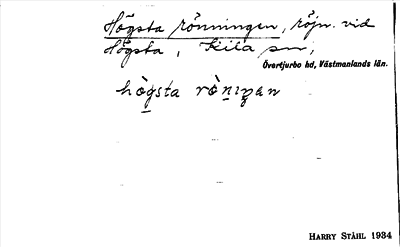 Högsta rönningen, röjn. vid
Högsta, Kila sn,
Övertjurbo hd, Västmanlands län.
hò̤gsta rò̤nıŋan
HARRY STÅHL 1934